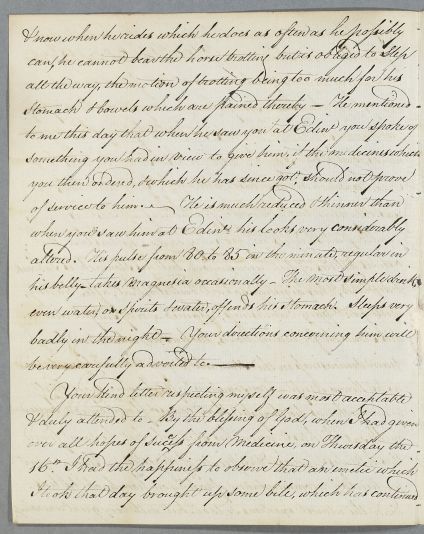 & now when he rides which he does as often as he possibly
can, he cannot bear the horse trotting but is obliged to step
all the way, the motion of trotting being too much for his
Stomach & bowels which are pained thereby — He mentioned
to me this day that when he saw you at Edinr. you spoke of
something you had in view to give him, if the medicines which
you then orderd, & which he has since got, should not prove
of service to him. — He is much reduced & thinner than
when you saw him at Edinr. his looks very considerably
altered. His pulse from 80 to 85 in the minute, regular in
his belly takes Magnesia occasionally — The most simple drink,
even water, or Spirits & water, offends his Stomach. Sleeps very
badly in the night — Your directions concerning him will
be very carefully adverted to. —
Your kind letter respecting myself was most acceptable
& duly attended to — By the blessing of God, when I had given
over all hopes of Sucess from Medicine, on Thursday the
16th. I had the happiness to observe that an emetic which
I took that day brought up some bile, which has continued